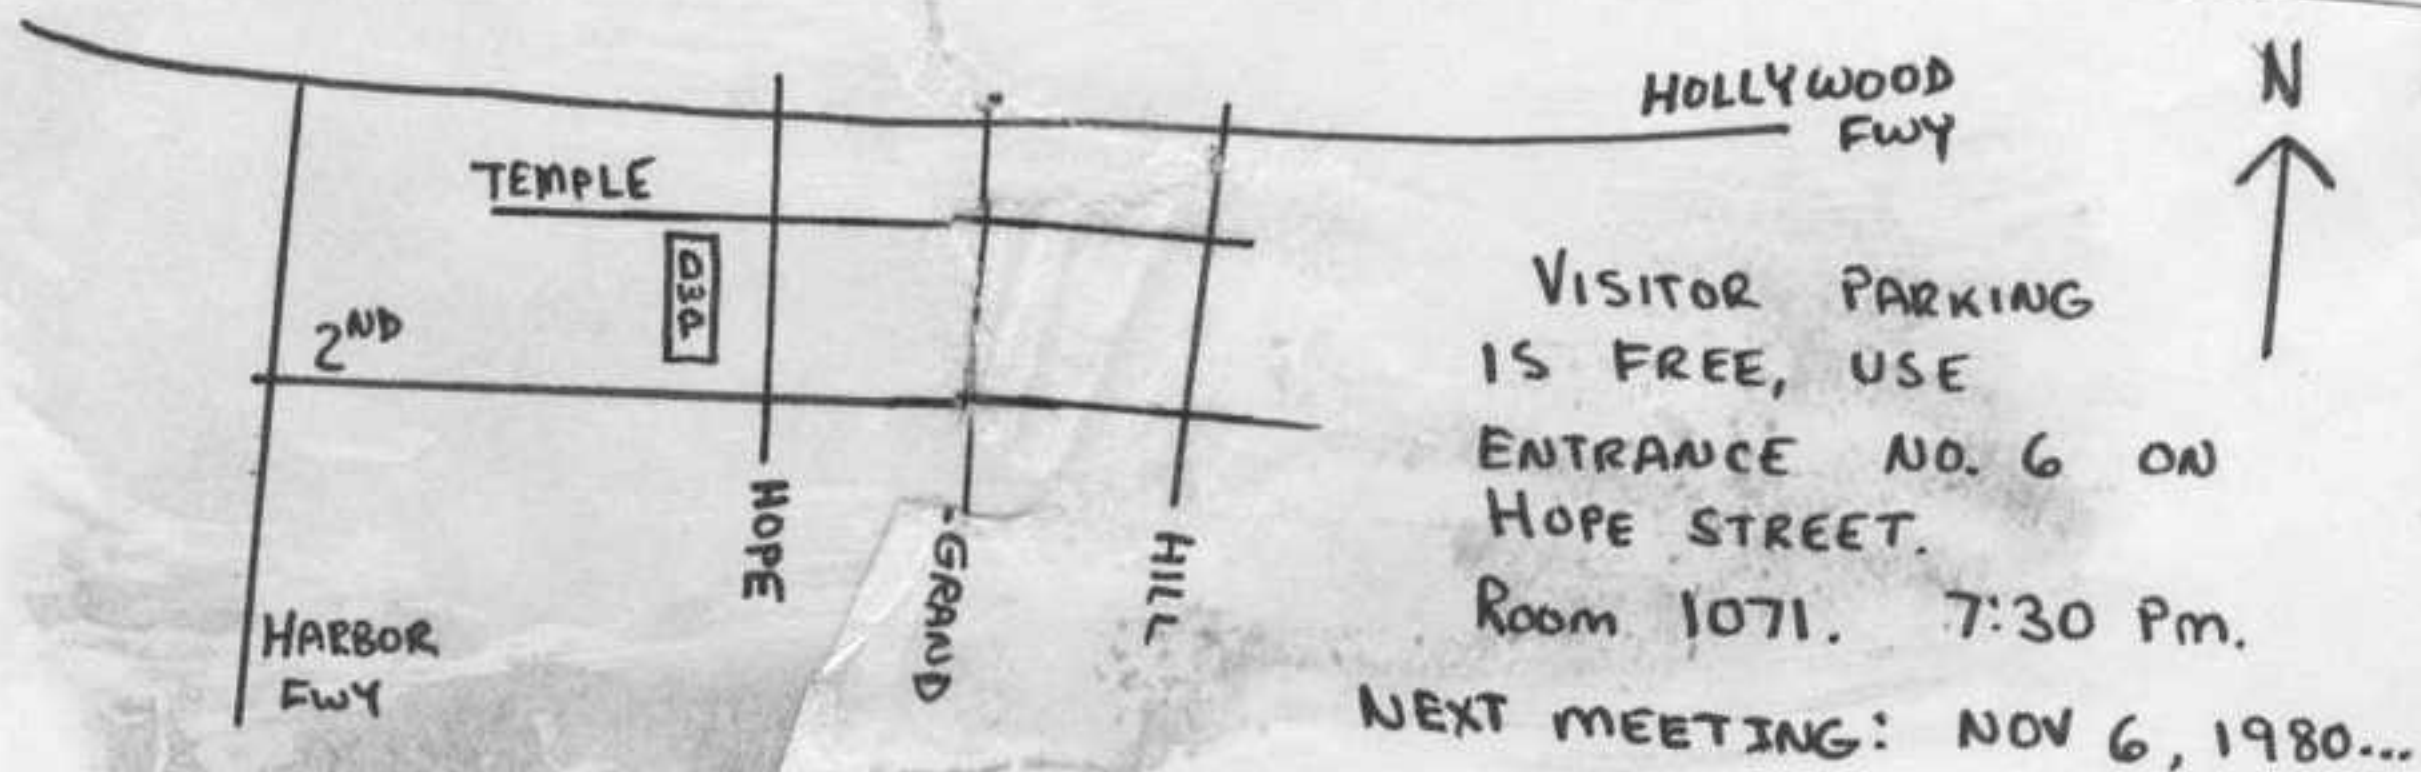 HOLLYWOOD
FWY
N
TEMPLE
DWP
2ND
HOPE
GRAND
HILL
HARBOR
FWY
VISITOR PARKING
IS FREE, USE
ENTRANCE NO. 6 ON
HOPE STREET.
Room 1071. 7:30 Pm.
NEXT MEETING: NOV 6, 1980...